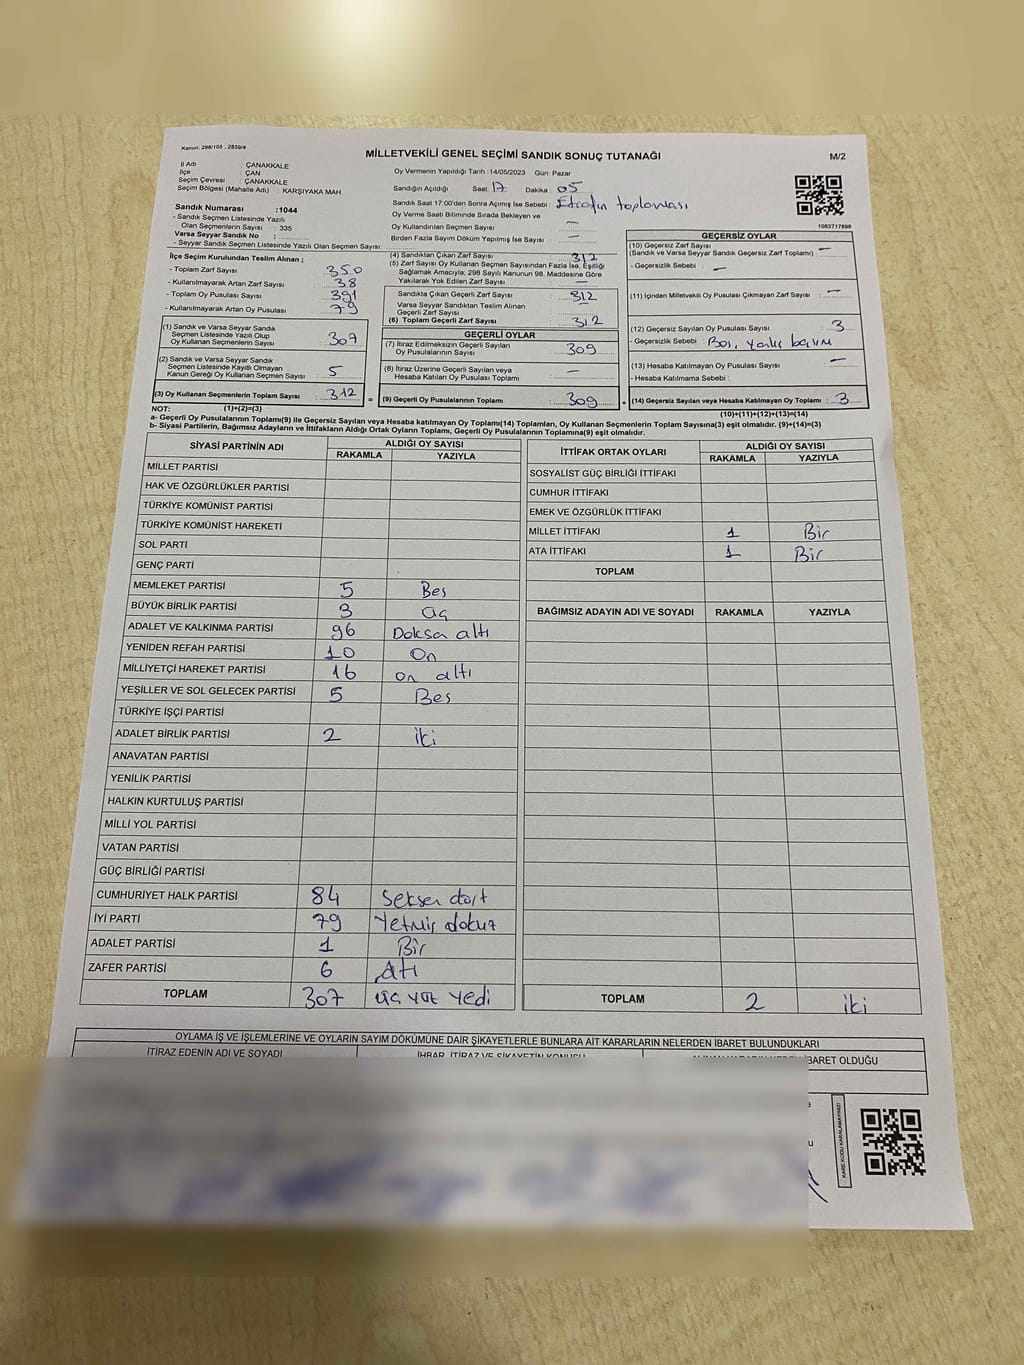 Kanun: 298/105 , 2839/4
MİLLETVEKİLİ GENEL SEÇİMİ SANDIK SONUÇ TUTANAĞI
M/2
İl Adı : ÇANAKKALE
İlçe : ÇAN
Seçim Çevresi : ÇANAKKALE
Seçim Bölgesi (Mahalle Adı) : KARŞIYAKA MAH
Oy Vermenin Yapıldığı Tarih : 14/05/2023 Gün: Pazar
Sandığın Açıldığı Saat: 17 Dakika : 05
Sandık Saat 17:00'den Sonra Açılmış İse Sebebi : Etrafın toplanması
Oy Verme Saati Bitiminde Sırada Bekleyen ve
Oy Kullandırılan Seçmen Sayısı : —
Birden Fazla Sayım Döküm Yapılmış İse Sayısı : —
1083717898
Sandık Numarası :1044
- Sandık Seçmen Listesinde Yazılı
Olan Seçmenlerin Sayısı : 335
Varsa Seyyar Sandık No :
- Seyyar Sandık Seçmen Listesinde Yazılı Olan Seçmen Sayısı:
İlçe Seçim Kurulundan Teslim Alınan ;
- Toplam Zarf Sayısı : 350
- Kullanılmayarak Artan Zarf Sayısı : 38
- Toplam Oy Pusulası Sayısı : 391
- Kullanılmayarak Artan Oy Pusulası : 79
(1) Sandık ve Varsa Seyyar Sandık
Seçmen Listesinde Yazılı Olup
Oy Kullanan Seçmenlerin Sayısı : 307
(2) Sandık ve Varsa Seyyar Sandık
Seçmen Listesinde Kayıtlı Olmayan
Kanun Gereği Oy Kullanan Seçmen Sayısı : 5
(3) Oy Kullanan Seçmenlerin Toplam Sayısı : 312 =
(1)+(2)=(3)
(4) Sandıktan Çıkan Zarf Sayısı : 312
(5) Zarf Sayısı Oy Kullanan Seçmen Sayısından Fazla İse, Eşitliği
Sağlamak Amacıyla; 298 Sayılı Kanunun 98. Maddesine Göre
Yakılarak Yok Edilen Zarf Sayısı : —
Sandıkta Çıkan Geçerli Zarf Sayısı : 312
Varsa Seyyar Sandıktan Teslim Alınan
Geçerli Zarf Sayısı : —
(6) Toplam Geçerli Zarf Sayısı : 312
GEÇERLİ OYLAR
(7) İtiraz Edilmeksizin Geçerli Sayılan
Oy Pusulalarının Sayısı : 309
(8) İtiraz Üzerine Geçerli Sayılan veya
Hesaba Katılan Oy Pusulası Toplamı : —
(9) Geçerli Oy Pusulalarının Toplamı : 309 +
GEÇERSİZ OYLAR
(10) Geçersiz Zarf Sayısı
(Sandık ve Varsa Seyyar Sandık Geçersiz Zarf Toplamı) : —
- Geçersizlik Sebebi : —
(11) İçinden Milletvekili Oy Pusulası Çıkmayan Zarf Sayısı : —
(12) Geçersiz Sayılan Oy Pusulası Sayısı : 3
- Geçersizlik Sebebi : Boş, yanlış basım
(13) Hesaba Katılmayan Oy Pusulası Sayısı : —
- Hesaba Katılmama Sebebi :
(14) Geçersiz Sayılan veya Hesaba Katılmayan Oy Toplamı : 3
(10)+(11)+(12)+(13)=(14)
NOT:
a- Geçerli Oy Pusulalarının Toplamı(9) ile Geçersiz Sayılan veya Hesaba Katılmayan Oy Toplamı(14) Toplamları, Oy Kullanan Seçmenlerin Toplam Sayısına(3) eşit olmalıdır. (9)+(14)=(3)
b- Siyasi Partilerin, Bağımsız Adayların ve İttifakların Aldığı Ortak Oyların Toplamı, Geçerli Oy Pusulalarının Toplamına(9) eşit olmalıdır.
SİYASİ PARTİNİN ADI
ALDIĞI OY SAYISI
RAKAMLA YAZIYLA
MİLLET PARTİSİ
HAK VE ÖZGÜRLÜKLER PARTİSİ
TÜRKİYE KOMÜNİST PARTİSİ
TÜRKİYE KOMÜNİST HAREKETİ
SOL PARTİ
GENÇ PARTİ
MEMLEKET PARTİSİ 5 Bes
BÜYÜK BİRLİK PARTİSİ 3 üç
ADALET VE KALKINMA PARTİSİ 96 Doksa altı
YENİDEN REFAH PARTİSİ 10 On
MİLLİYETÇİ HAREKET PARTİSİ 16 on altı
YEŞİLLER VE SOL GELECEK PARTİSİ 5 Bes
TÜRKİYE İŞÇİ PARTİSİ
ADALET BİRLİK PARTİSİ 2 iki
ANAVATAN PARTİSİ
YENİLİK PARTİSİ
HALKIN KURTULUŞ PARTİSİ
MİLLİ YOL PARTİSİ
VATAN PARTİSİ
GÜÇ BİRLİĞİ PARTİSİ
CUMHURİYET HALK PARTİSİ 84 Seksen dört
İYİ PARTİ 79 Yetmiş dokuz
ADALET PARTİSİ 1 Bir
ZAFER PARTİSİ 6 Altı
TOPLAM 307 üç yüz yedi
İTTİFAK ORTAK OYLARI
ALDIĞI OY SAYISI
RAKAMLA YAZIYLA
SOSYALİST GÜÇ BİRLİĞİ İTTİFAKI
CUMHUR İTTİFAKI
EMEK VE ÖZGÜRLÜK İTTİFAKI
MİLLET İTTİFAKI 1 Bir
ATA İTTİFAKI 1 Bir
TOPLAM
BAĞIMSIZ ADAYIN ADI VE SOYADI RAKAMLA YAZIYLA
TOPLAM 2 iki
OYLAMA İŞ VE İŞLEMLERİNE VE OYLARIN SAYIM DÖKÜMÜNE DAİR ŞİKAYETLERLE BUNLARA AİT KARARLARIN NELERDEN İBARET BULUNDUKLARI
İTİRAZ EDENİN ADI VE SOYADI
İHBAR, İTİRAZ VE ŞİKAYETİN KONUSU
İBARET OLDUĞU
KARE KODU KARALAMAYINIZ!